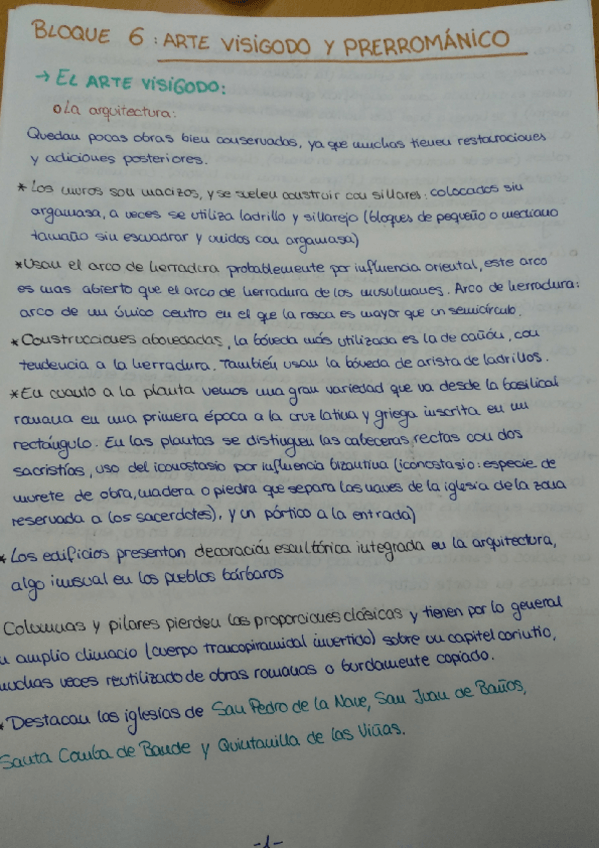 BLOQUE 6: ARTE VISIGODO Y PRERROMÁNICO
→ EL ARTE VISIGODO:
o La arquitectura:
Quedan pocas obras bien conservadas, ya que muchas tienen restauraciones
y adiciones posteriores.
* Los muros son macizos, y se suelen construir con sillares: colocados sin
argamasa, a veces se utiliza ladrillo y sillarejo (bloques de pequeño o mediano
tamaño sin escuadrar y unidos con argamasa)
* Usan el arco de herradura probablemente por influencia oriental, este arco
es mas abierto que el arco de herradura de los musulmanes. Arco de herradura:
arco de un único centro en el que la rosca es mayor que un semicírculo.
* Construcciones abovedadas, la bóveda más utilizada es la de cañón, con
tendencia a la herradura. También usan la bóveda de arista de ladrillos.
* En cuanto a la planta vemos una gran variedad que va desde la basilical
romana en una primera época a la cruz latina y griega inscrita en un
rectángulo. En las plantas se distinguen las cabeceras rectas con dos
sacristías, uso del iconostasio por influencia bizantina (iconostasio: especie de
murete de obra, madera o piedra que separa las naves de la iglesia de la zona
reservada a los sacerdotes), y un pórtico a la entrada)
* Los edificios presentan decoración escultórica integrada en la arquitectura,
algo inusual en los pueblos bárbaros
Columnas y pilares pierden las proporciones clásicas y tienen por lo general
un amplio cimacio (cuerpo troncopiramidal invertido) sobre un capitel corintio,
muchas veces reutilizado de obras romanas o burdamente copiado.
* Destacan las iglesias de San Pedro de la Nave, San Juan de Baños,
Santa Comba de Bande y Quintanilla de las Viñas.
-1-